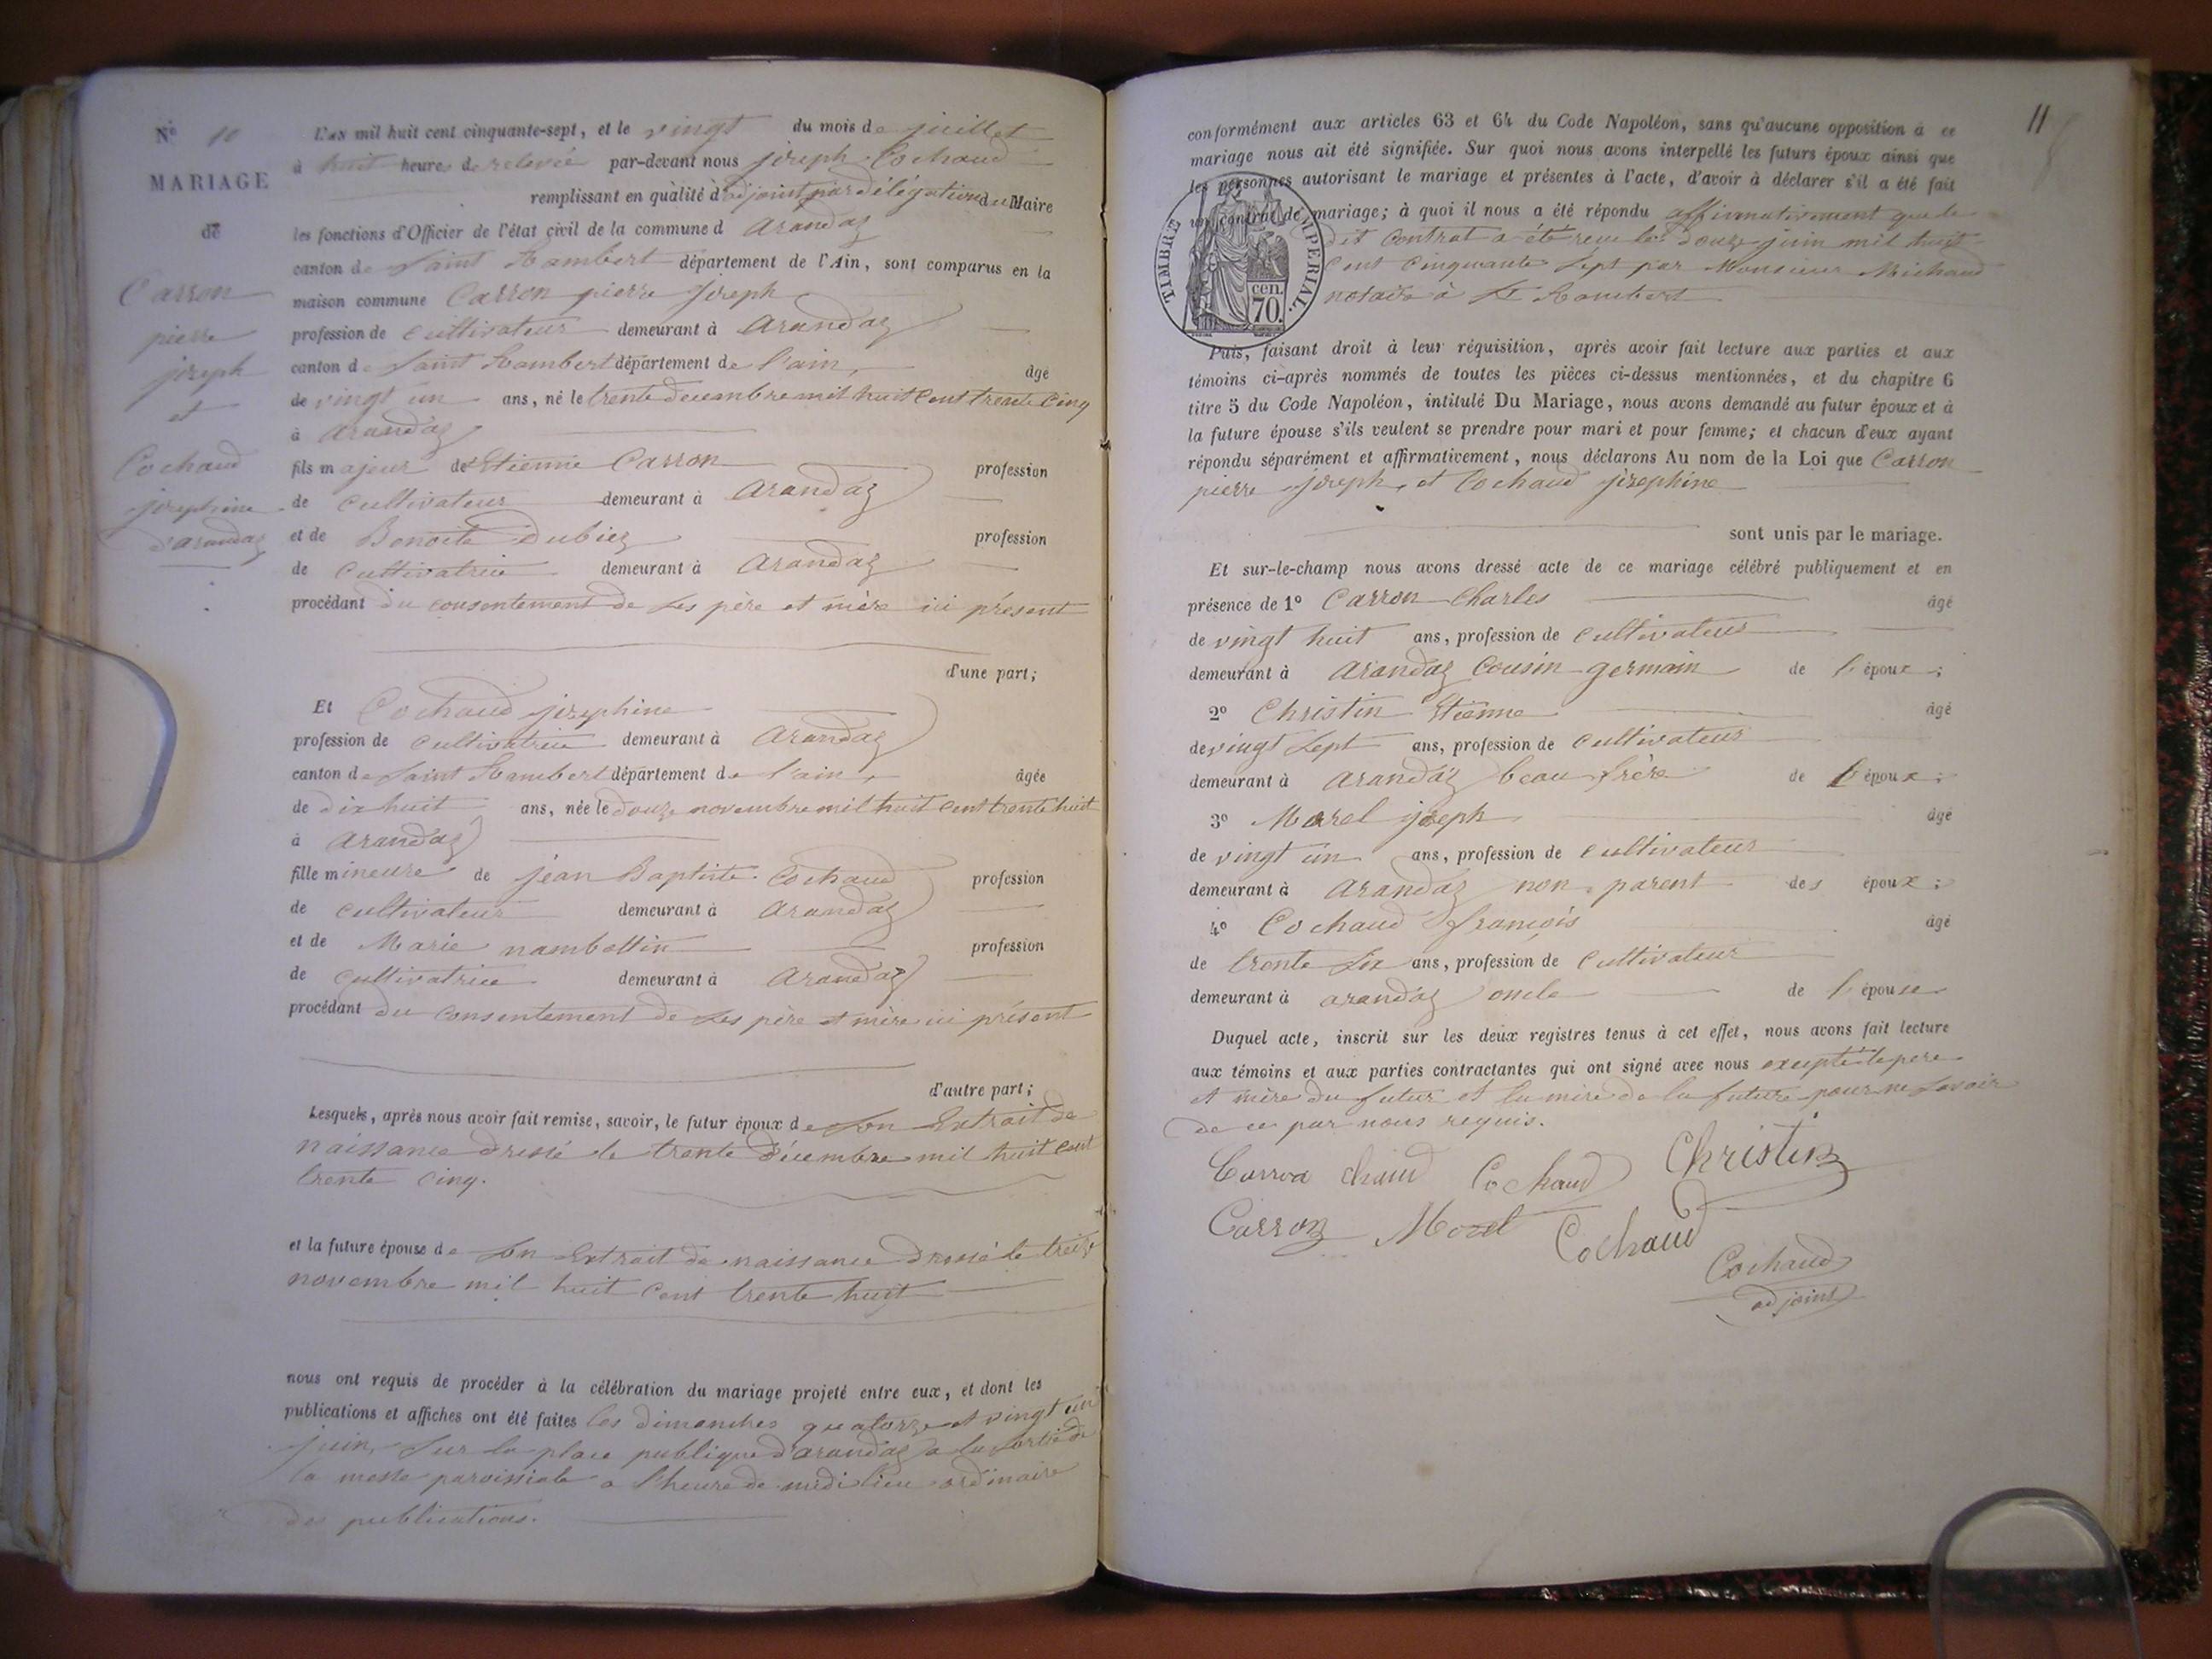 N° 10
MARIAGE
de
Carron
pierre
joseph
et
Cochaud
josephine
d'arandaz
L'an mil huit cent cinquante-sept, et le vingt du mois de juillet
à huit heures de relevée par-devant nous joseph Cochaud
remplissant en quàlité d'adjoint par délégation du Maire
les fonctions d'Officier de l'état civil de la commune d arandaz
canton de Saint Rambert département de l'Ain, sont comparus en la
maison commune Carron pierre Joseph
profession de cultivateur demeurant à arandaz
canton de Saint Rambert département de l'ain, âgé
de vingt un ans, né le trente decembre mil huit cent trente cinq
à arandaz
fils majeur de Etienne Carron profession
de cultivateur demeurant à arandaz
et de Benoite Dubiez profession
de cultivatrice demeurant à arandaz
procédant du consentement de ses père et mère ici présent
d'une part;
Et Cochaud josephine
profession de cultivatrice demeurant à arandaz
canton de Saint Rambert département de l'ain, âgée
de dix huit ans, née le douze novembre mil huit cent trente huit
à arandaz
fille mineure de jean Baptiste Cochaud profession
de cultivateur demeurant à arandaz
et de Marie nambottin profession
de cultivatrice demeurant à arandaz
procédant du consentement de ses père et mère ici présent
d'autre part;
Lesquels, après nous avoir fait remise, savoir, le futur époux de son Extrait de
naissance dressé le trente décembre mil huit cent
trente cinq.
et la future épouse de son Extrait de naissance dressé le treize
novembre mil huit cent trente huit
nous ont requis de procéder à la célébration du mariage projeté entre eux, et dont les
publications et affiches ont été faites les dimanches quatorze et vingt un
juin, sur la place publique d'arandaz a la sortie de
la messe paroissiale a l'heure de midi lieu ordinaire
des publications.
11
conformément aux articles 63 et 64 du Code Napoléon, sans qu'aucune opposition à ce
mariage nous ait été signifiée. Sur quoi nous avons interpellé les futurs époux ainsi que
les personnes autorisant le mariage et présentes à l'acte, d'avoir à déclarer s'il a été fait
un contrat de mariage; à quoi il nous a été répondu affirmativement que le
dit contrat a été reçu le douze juin mil huit
cent cinquante sept par Monsieur Michaud
notaire à St Rambert
TIMBRE IMPERIAL.
cen.
70.
Puis, faisant droit à leur réquisition, après avoir fait lecture aux parties et aux
témoins ci-après nommés de toutes les pièces ci-dessus mentionnées, et du chapitre 6
titre 5 du Code Napoléon, intitulé Du Mariage, nous avons demandé au futur époux et à
la future épouse s'ils veulent se prendre pour mari et pour femme; et chacun d'eux ayant
répondu séparément et affirmativement, nous déclarons Au nom de la Loi que Carron
pierre joseph, et Cochaud josephine
sont unis par le mariage.
Et sur-le-champ nous avons dressé acte de ce mariage célébré publiquement et en
présence de 1° Carron Charles âgé
de vingt huit ans, profession de cultivateur
demeurant à arandaz Cousin germain de l'époux;
2° Christin Etienne âgé
de vingt sept ans, profession de cultivateur
demeurant à arandaz beau frère de l'époux;
3° Morel joseph âgé
de vingt un ans, profession de cultivateur
demeurant à arandaz non parent des époux;
4° Cochaud françois âgé
de trente six ans, profession de cultivateur
demeurant à arandaz oncle de l'épouse
Duquel acte, inscrit sur les deux registres tenus à cet effet, nous avons fait lecture
aux témoins et aux parties contractantes qui ont signé avec nous excepté le pere
et mère du futur et la mère de la future pour ne savoir
de ce par nous requis.
Cochaud Christin
Carron Morel Cochaud
Cochaud
adjoint